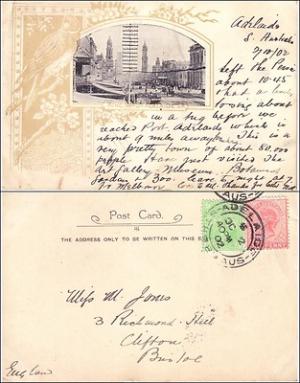 Adelaide
S. Australia
2/10/02
left the
about 10.45
that a
about
in a tug before we
reached Port Adelaide which is
about 9 miles away. This is a
very pretty town of about 80,000
people. Have just visited The
Art Gallery, Museum, Botanical
Gardens & Zoo. leave to night at 7
for Melbourne
Post Card.
THE ADDRESS ONLY TO BE WRITTEN ON THIS
ADELAIDE
Miss M. Jones
3 Richmond Hill
Clifton
Bristol
England